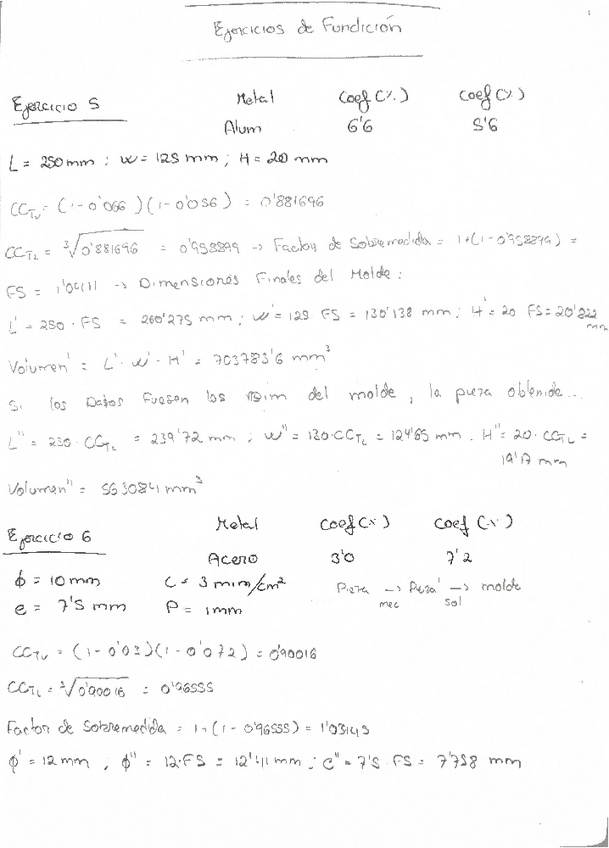 Ejercicios de Fundición
Ejercicio 5 Metal Coef (%) Coef (%)
Alum 6'6 5'6
L = 250 mm ; W = 125 mm ; H = 20 mm
CCTv = (1-0'066)(1-0'056) = 0'881696
CCTL = ∛0'881696 = 0'958899 -> Factor de Sobremedida = 1+(1-0'958899) =
FS = 1'0411 -> Dimensiones Finales del Molde :
L' = 250 · FS = 260'275 mm ; W' = 125 FS = 130'138 mm ; H' = 20 FS = 20'822 mm
Volumen' = L' · W' · H' = 703783'6 mm³
Si los Datos Fuesen los Dim del molde, la pieza obtenida...
L'' = 250 · CCTL = 239'72 mm ; W'' = 130 · CCTL = 124'65 mm . H'' = 20 · CCTL =
19'17 mm
Volumen'' = 563084 mm³
Ejercicio 6 Metal Coef (%) Coef (%)
Acero 3'0 7'2
φ = 10 mm C = 3 mm/cm² Pieza mec -> Pieza' sol -> molde
e = 7'5 mm P = 1 mm
CCTv = (1-0'03)(1-0'072) = 0'90016
CCTL = ∛0'90016 = 0'96555
Factor de Sobremedida = 1+(1-0'96555) = 1'03445
φ' = 12 mm , φ'' = 12·FS = 12'41 mm ; e'' = 7'5 · FS = 7'758 mm